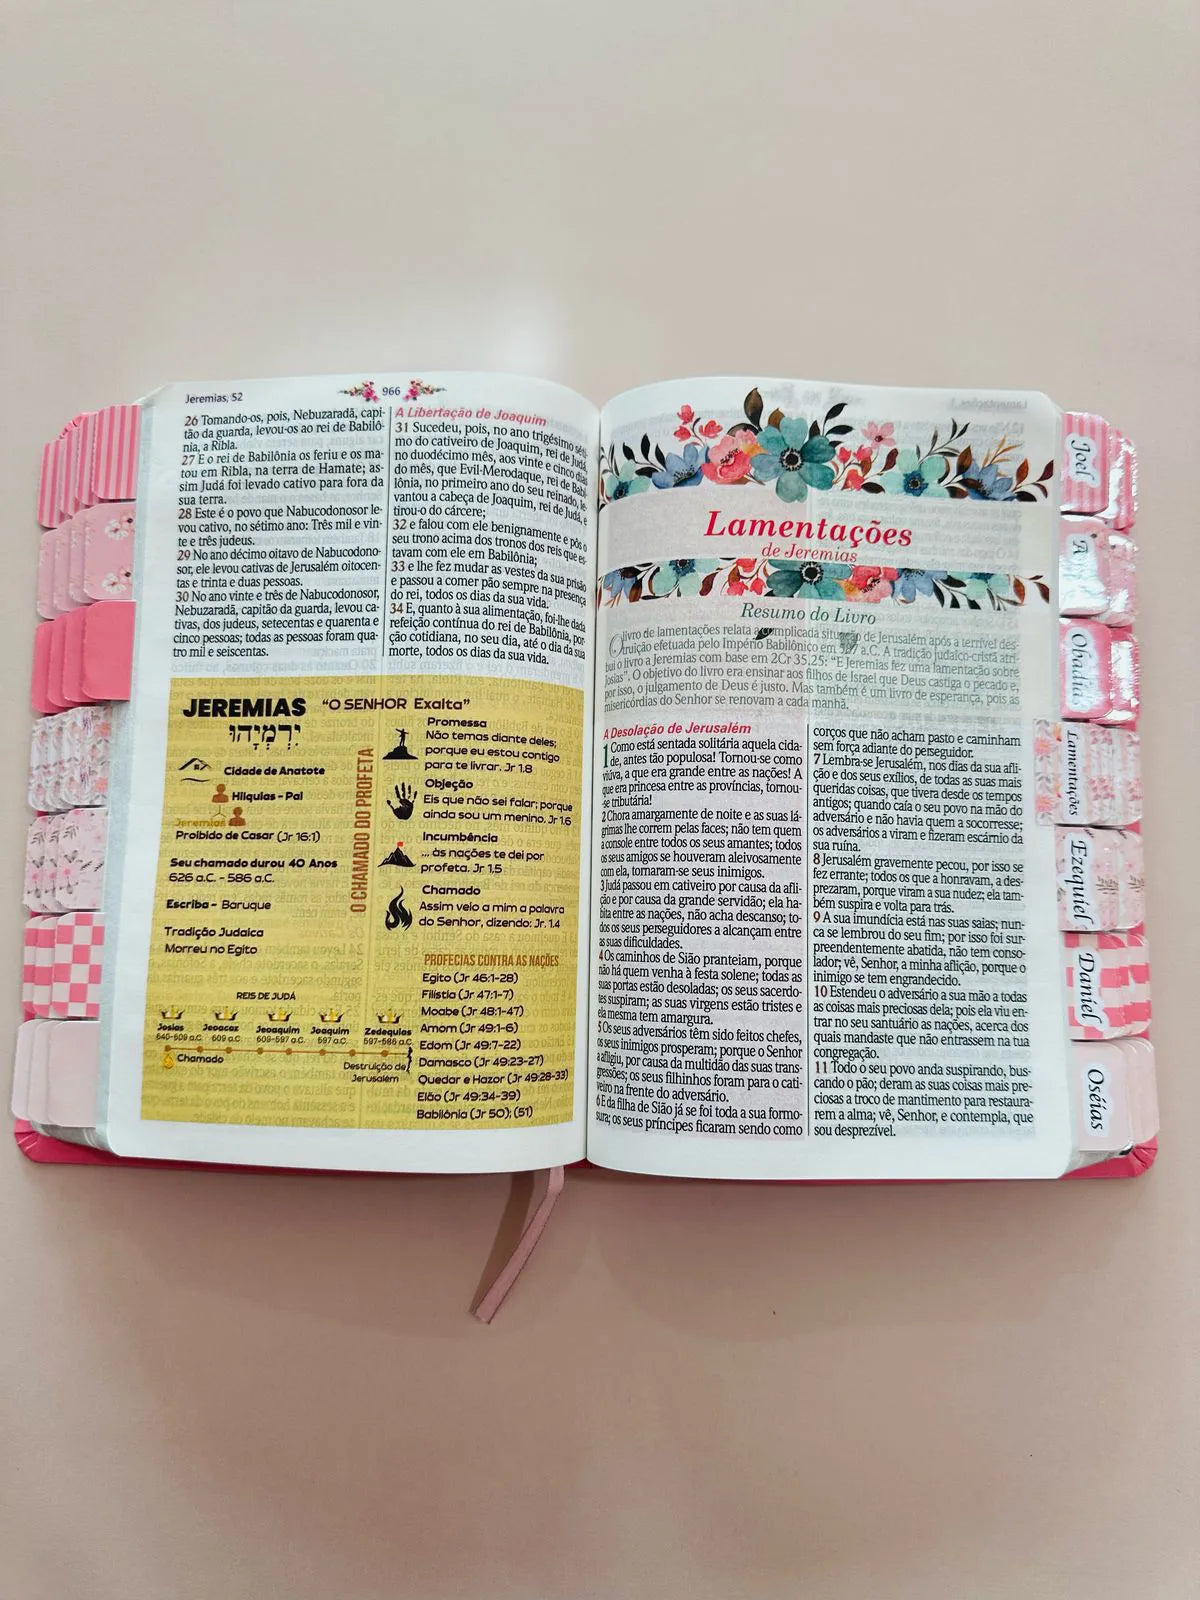 Jeremias, 52
966
26 Tomando-os, pois, Nebuzaradã, capi-
tão da guarda, levou-os ao rei de Babilô-
nia, a Ribla.
27 E o rei de Babilônia os feriu e os ma-
tou em Ribla, na terra de Hamate; as-
sim Judá foi levado cativo para fora da
sua terra.
28 Este é o povo que Nabucodonosor le-
vou cativo, no sétimo ano: Três mil e vin-
te e três judeus.
29 No ano décimo oitavo de Nabucodono-
sor, ele levou cativas de Jerusalém oitocen-
tas e trinta e duas pessoas.
30 No ano vinte e três de Nabucodonosor,
Nebuzaradã, capitão da guarda, levou ca-
tivas, dos judeus, setecentas e quarenta e
cinco pessoas; todas as pessoas foram qua-
tro mil e seiscentas.
A Libertação de Joaquim
31 Sucedeu, pois, no ano trigésimo séti-
mo do cativeiro de Joaquim, rei de Judá,
no duodécimo mês, aos vinte e cinco dias
do mês, que Evil-Merodaque, rei de Babi-
lônia, no primeiro ano do seu reinado, le-
vantou a cabeça de Joaquim, rei de Judá, e
tirou-o do cárcere;
32 e falou com ele benignamente e pôs o
seu trono acima dos tronos dos reis que es-
tavam com ele em Babilônia;
33 e lhe fez mudar as vestes da sua prisão
e passou a comer pão sempre na presença
do rei, todos os dias da sua vida.
34 E, quanto à sua alimentação, foi-lhe dada
refeição contínua do rei de Babilônia, por-
ção cotidiana, no seu dia, até o dia da sua
morte, todos os dias da sua vida.
JEREMIAS "O SENHOR Exalta"
יִרְמְיָהוּ
Cidade de Anatote
Hilquias - Pai
Jeremias
Proibido de Casar (Jr 16:1)
Seu chamado durou 40 Anos
626 a.C. - 586 a.C.
Escriba - Baruque
Tradição Judaica
Morreu no Egito
O CHAMADO DO PROFETA
Promessa
Não temas diante deles;
porque eu estou contigo
para te livrar. Jr 1.8
Objeção
Eis que não sei falar; porque
ainda sou um menino. Jr 1.6
Incumbência
... às nações te dei por
profeta. Jr 1.5
Chamado
Assim veio a mim a palavra
do Senhor, dizendo: Jr 1.4
PROFECIAS CONTRA AS NAÇÕES
Egito (Jr 46:1-28)
Filístia (Jr 47:1-7)
Moabe (Jr 48:1-47)
Amom (Jr 49:1-6)
Edom (Jr 49:7-22)
Damasco (Jr 49:23-27)
Quedar e Hazor (Jr 49:28-33)
Elão (Jr 49:34-39)
Babilônia (Jr 50); (51)
REIS DE JUDÁ
Josias Jeoacaz Jeoaquim Joaquim Zedequias
640-609 a.C. 609 a.C. 609-597 a.C. 597 a.C. 597-586 a.C.
Chamado
Destruição de
Jerusalém
Lamentações
de Jeremias
Resumo do Livro
O livro de lamentações relata a complicada situação de Jerusalém após a terrível des-
truição efetuada pelo Império Babilônico em a.C. A tradição judaico-cristã atri-
bui o livro a Jeremias com base em 2Cr 35.25: "E Jeremias fez uma lamentação sobre
Josias". O objetivo do livro era ensinar aos filhos de Israel que Deus castiga o pecado e,
por isso, o julgamento de Deus é justo. Mas também é um livro de esperança, pois as
misericórdias do Senhor se renovam a cada manhã.
A Desolação de Jerusalém
1 Como está sentada solitária aquela cida-
de, antes tão populosa! Tornou-se como
viúva, a que era grande entre as nações! A
que era princesa entre as províncias, tornou-
-se tributária!
2 Chora amargamente de noite e as suas lá-
grimas lhe correm pelas faces; não tem quem
a console entre todos os seus amantes; todos
os seus amigos se houveram aleivosamente
com ela, tornaram-se seus inimigos.
3 Judá passou em cativeiro por causa da afli-
ção e por causa da grande servidão; ela ha-
bita entre as nações, não acha descanso; to-
dos os seus perseguidores a alcançam entre
as suas dificuldades.
4 Os caminhos de Sião pranteiam, porque
não há quem venha à festa solene; todas as
suas portas estão desoladas; os seus sacerdo-
tes suspiram; as suas virgens estão tristes e
ela mesma tem amargura.
5 Os seus adversários têm sido feitos chefes,
os seus inimigos prosperam; porque o Senhor
a afligiu, por causa da multidão das suas trans-
gressões; os seus filhinhos foram para o cati-
veiro na frente do adversário.
6 E da filha de Sião já se foi toda a sua formo-
sura; os seus príncipes ficaram sendo como
corços que não acham pasto e caminham
sem força adiante do perseguidor.
7 Lembra-se Jerusalém, nos dias da sua afli-
ção e dos seus exílios, de todas as suas mais
queridas coisas, que tivera desde os tempos
antigos; quando caía o seu povo na mão do
adversário e não havia quem a socorresse;
os adversários a viram e fizeram escárnio da
sua ruína.
8 Jerusalém gravemente pecou, por isso se
fez errante; todos que a honravam, a des-
prezaram, porque viram a sua nudez; ela tam-
bém suspira e volta para trás.
9 A sua imundícia está nas suas saias; nun-
ca se lembrou do seu fim; por isso foi sur-
preendentemente abatida, não tem conso-
lador; vê, Senhor, a minha aflição, porque o
inimigo se tem engrandecido.
10 Estendeu o adversário a sua mão a todas
as coisas mais preciosas dela; pois ela viu en-
trar no seu santuário as nações, acerca dos
quais mandaste que não entrassem na tua
congregação.
11 Todo o seu povo anda suspirando, bus-
cando o pão; deram as suas coisas mais pre-
ciosas a troco de mantimento para restaura-
rem a alma; vê, Senhor, e contempla, que
sou desprezível.
Joel
Obadias
Lamentações
Ezequiel
Daniel
Oséias